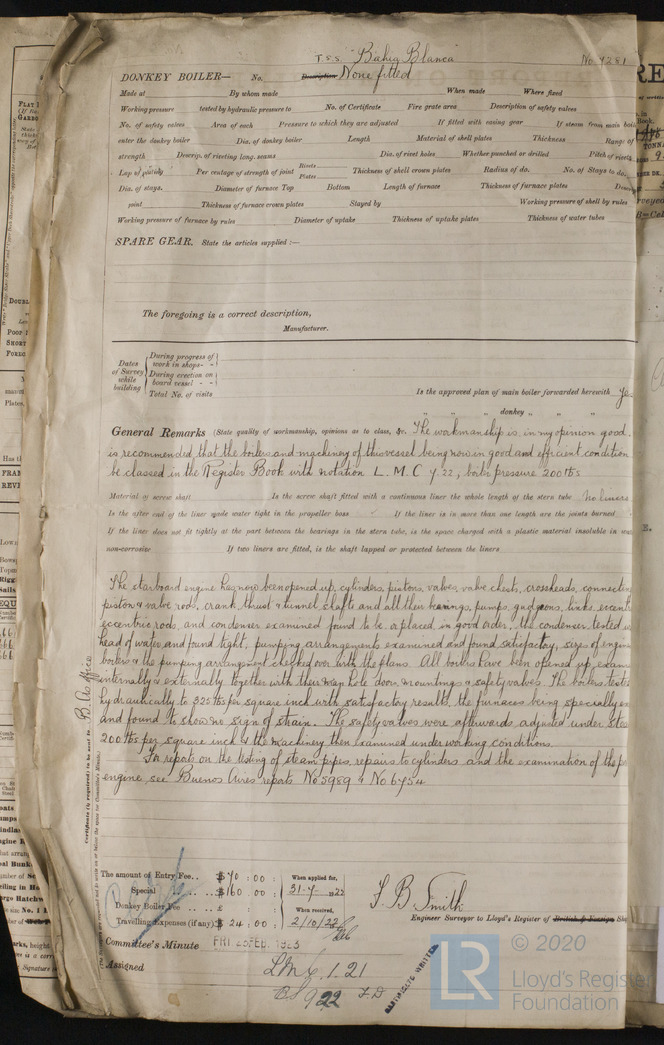 T.S.S. "Bahia Blanca" No 9281
DONKEY BOILER— No. Description None fitted
Made at By whom made When made Where fixed
Working pressure tested by hydraulic pressure to No. of Certificate Fire grate area Description of safety valves
No. of safety valves Area of each Pressure to which they are adjusted If fitted with easing gear If steam from main boilers
enter the donkey boiler Dia. of donkey boiler Length Material of shell plates Thickness Range of
strength Descrip. of riveting long. seams Dia. of rivet holes Whether punched or drilled Pitch of rivets
Lap of plating Per centage of strength of joint Rivets Plates Thickness of shell crown plates Radius of do. No. of Stays to do.
Dia. of stays. Diameter of furnace Top Bottom Length of furnace Thickness of furnace plates
joint Thickness of furnace crown plates Stayed by Working pressure of shell by rules
Working pressure of furnace by rules Diameter of uptake Thickness of uptake plates Thickness of water tubes
SPARE GEAR. State the articles supplied :—
The foregoing is a correct description,
Manufacturer.
Dates of Survey while building
During progress of work in shops - -
During erection on board vessel - -
Total No. of visits
Is the approved plan of main boiler forwarded herewith
" " donkey " "
General Remarks (State quality of workmanship, opinions as to class, &c. The workmanship is, in my opinion good.
is recommended that the boilers and machinery of this vessel being now in good and efficient condition
be classed in the Register Book with notation L. M. C 7.22, boiler pressure 200 lbs
Material of screw shaft Is the screw shaft fitted with a continuous liner the whole length of the stern tube No liners
Is the after end of the liner made water tight in the propeller boss If the liner is in more than one length are the joints burned
If the liner does not fit tightly at the part between the bearings in the stern tube, is the space charged with a plastic material insoluble in
non-corrosive If two liners are fitted, is the shaft lapped or protected between the liners
The starboard engine has now been opened up, cylinders, pistons, valves, valve chest, crossheads, connecting
piston & valve rods, crank, thrust & tunnel shafts and all their bearings, pumps, gudgeons, links, eccentric
eccentric rods, and condenser examined found to be or placed in good order, the condenser tested
head of water and found tight, pumping arrangements examined and found satisfactory, sizes of engine
boilers & the pumping arrangement checked over with the plans. All boilers have been opened up,
internally & externally together with their man hole door, mountings & safety valves. The boilers
hydraulically to 325 lbs per square inch with satisfactory results, the furnaces being specially
and found to show no sign of strain. The safety valves were afterwards adjusted under
200 lbs per square inch & the machinery then examined under working conditions.
For reports on the testing of steam pipes, repairs to cylinders and the examination of the
engine, see Buenos Aires reports No 5989 & No 6454
Certificate (if required) to be sent to B. As. office
The amount of Entry Fee .. $ 70 : 00 : When applied for,
Special .. .. $ 160 . 00 : 31.7.1922
Donkey Boiler Fee .. .. £ When received,
Travelling Expenses (if any) $ 24 : 00 : 2/10/22
J B Smith
Engineer Surveyor to Lloyd's Register of British & Foreign
Committee's Minute FRI FEB. 1923
Assigned
CERTIFICATE WRITTEN
LR © 2020
Lloyd's Register
Foundation